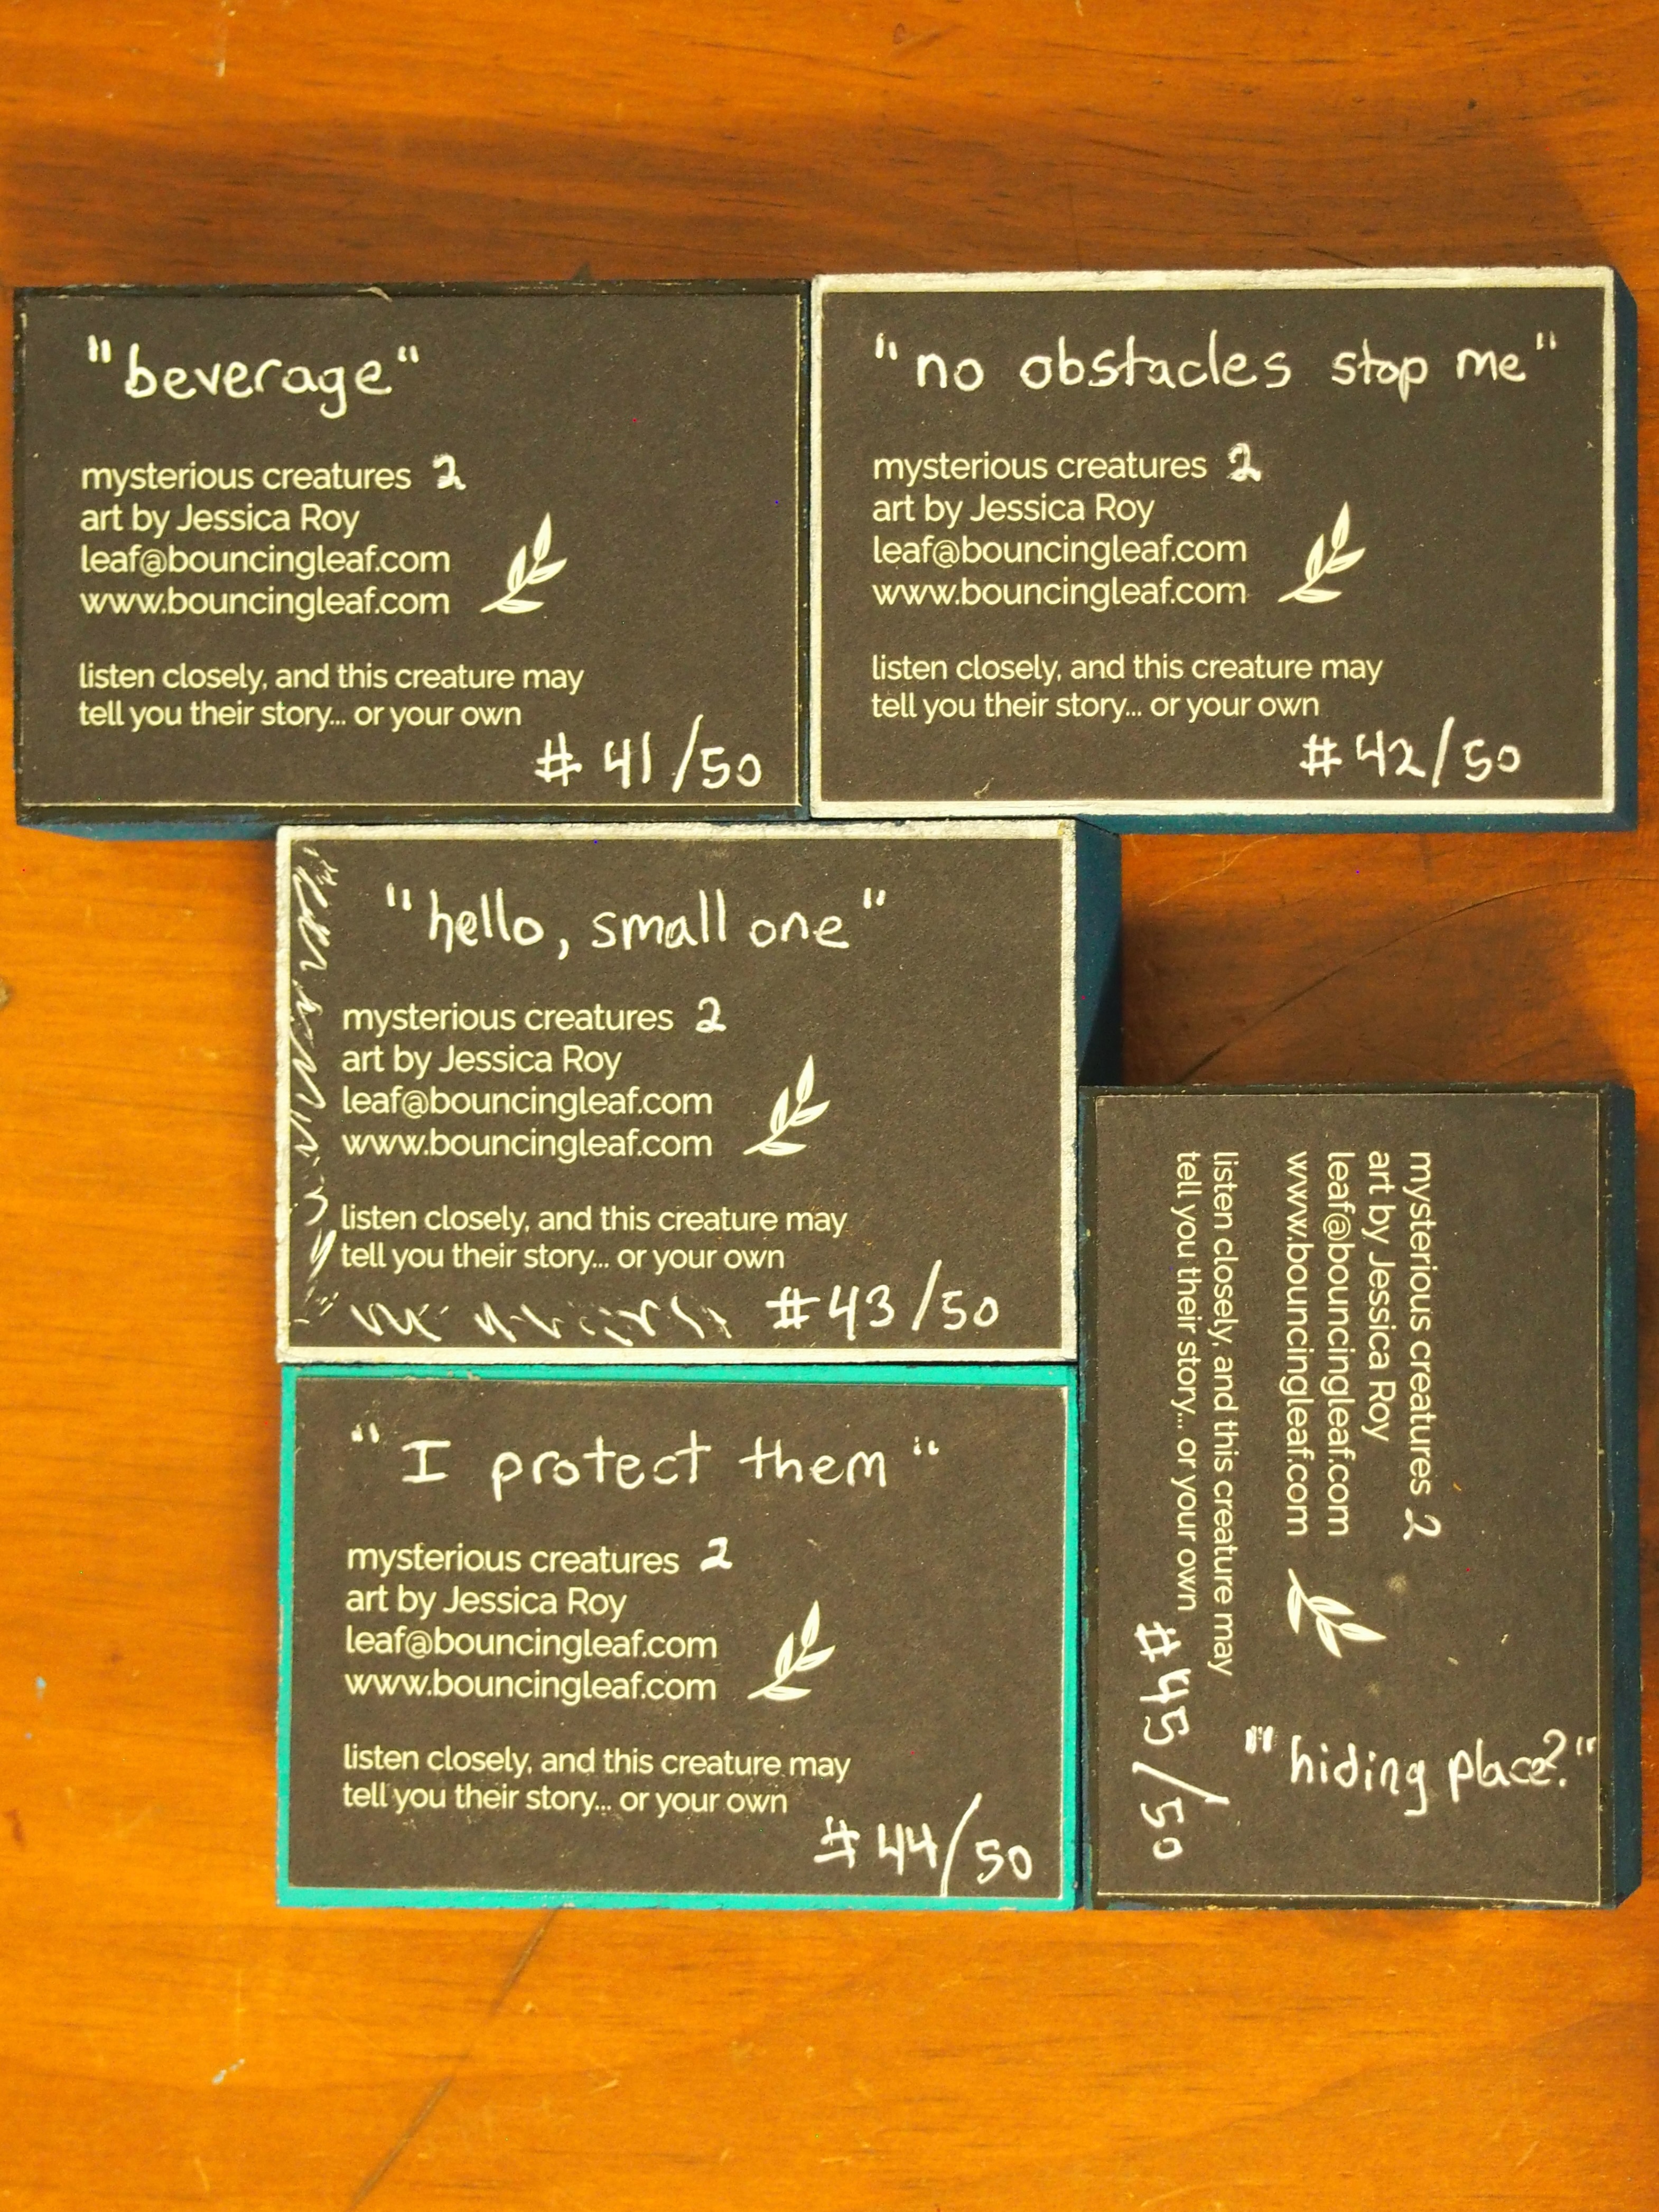 "beverage"
mysterious creatures 2
art by Jessica Roy
leaf@bouncingleaf.com
www.bouncingleaf.com
listen closely, and this creature may
tell you their story... or your own
#41/50
"no obstacles stop me"
mysterious creatures 2
art by Jessica Roy
leaf@bouncingleaf.com
www.bouncingleaf.com
listen closely, and this creature may
tell you their story... or your own
#42/50
"hello, small one"
mysterious creatures 2
art by Jessica Roy
leaf@bouncingleaf.com
www.bouncingleaf.com
listen closely, and this creature may
tell you their story... or your own
#43/50
"I protect them"
mysterious creatures 2
art by Jessica Roy
leaf@bouncingleaf.com
www.bouncingleaf.com
listen closely, and this creature may
tell you their story... or your own
#44/50
mysterious creatures 2
art by Jessica Roy
leaf@bouncingleaf.com
www.bouncingleaf.com
listen closely, and this creature may
tell you their story... or your own
#45/50
"hiding place?"